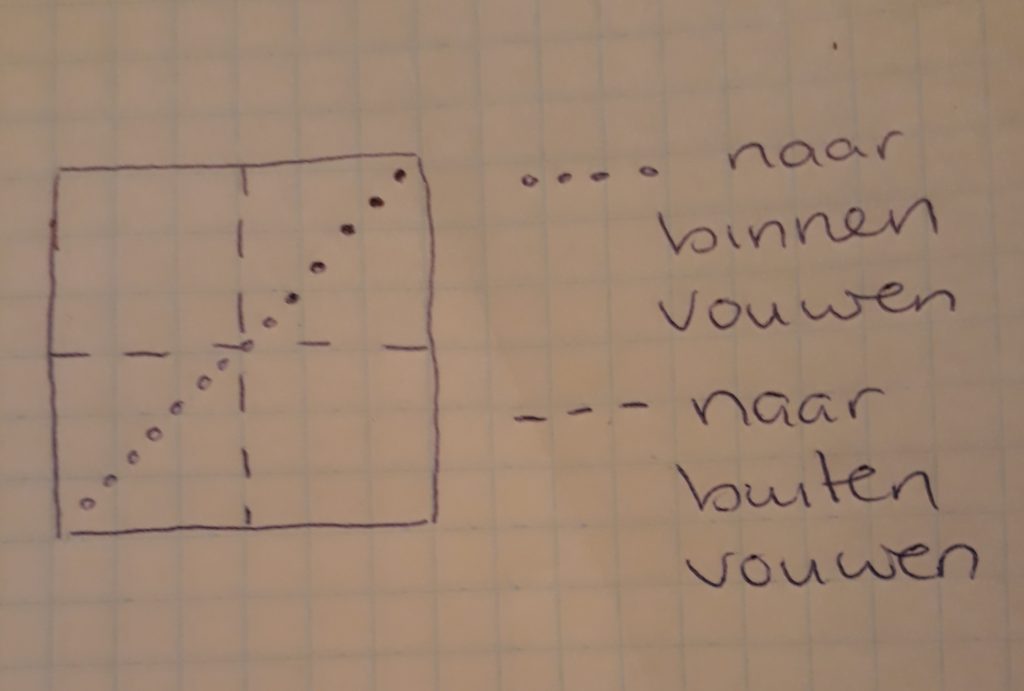 naar
binnen
vouwen
naar
buiten
vouwen